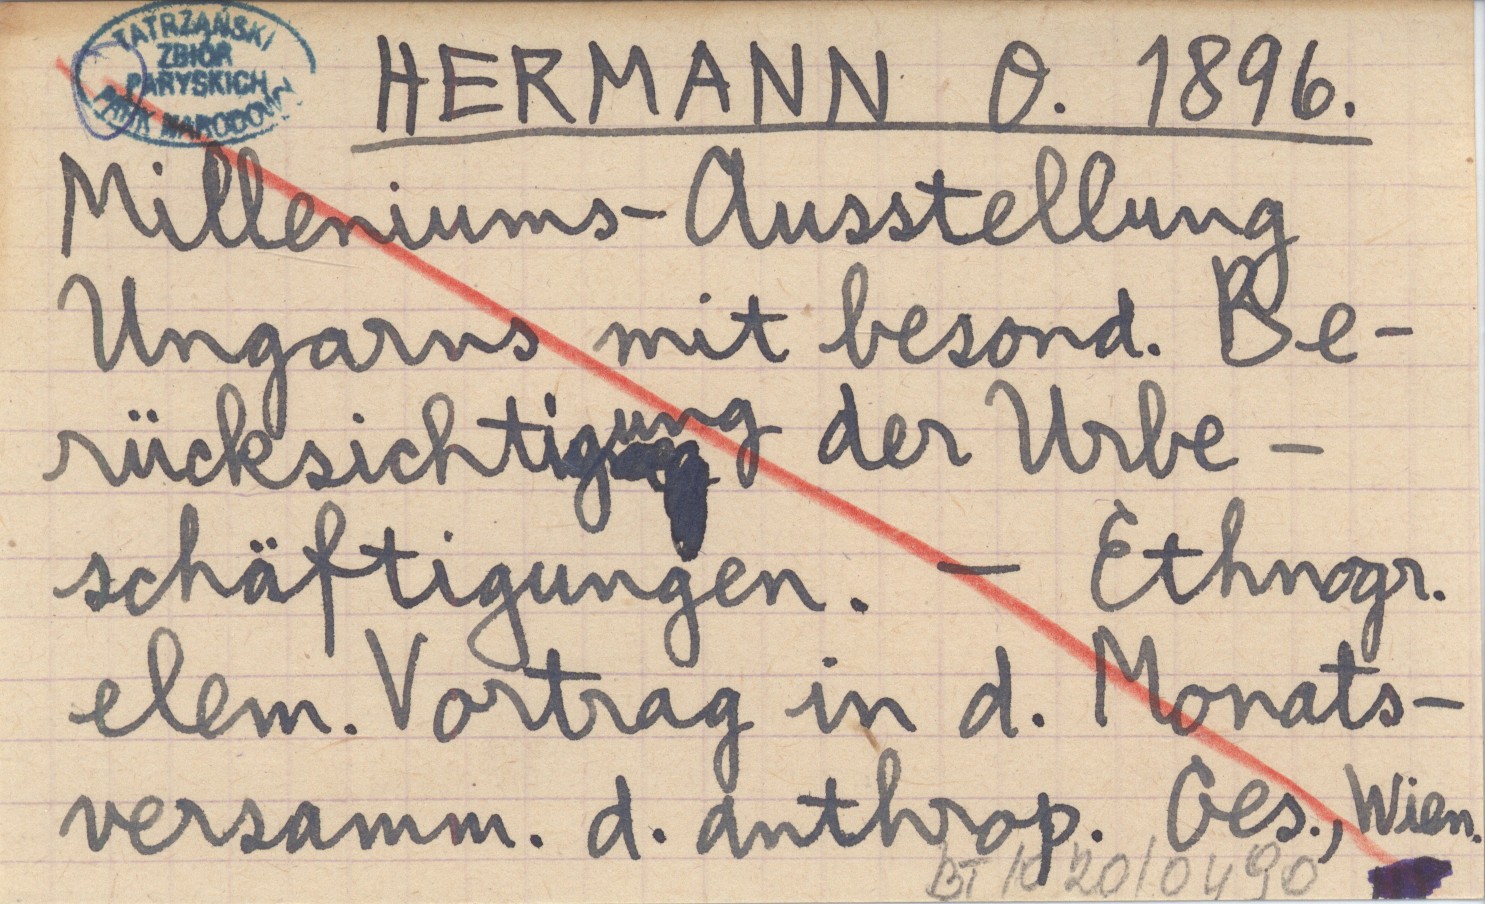 TATRZAŃSKI
ZBIÓR
PARYSKICH
PARK NARODOWY
HERMANN O. 1896.
Milleniums-Ausstellung
Ungarns mit besond. Be-
rücksichtigung der Urbe-
schäftigungen. — Ethnogr.
elem. Vortrag in d. Monats-
versamm. d. anthrop. Ges., Wien.
BT/K20/0490